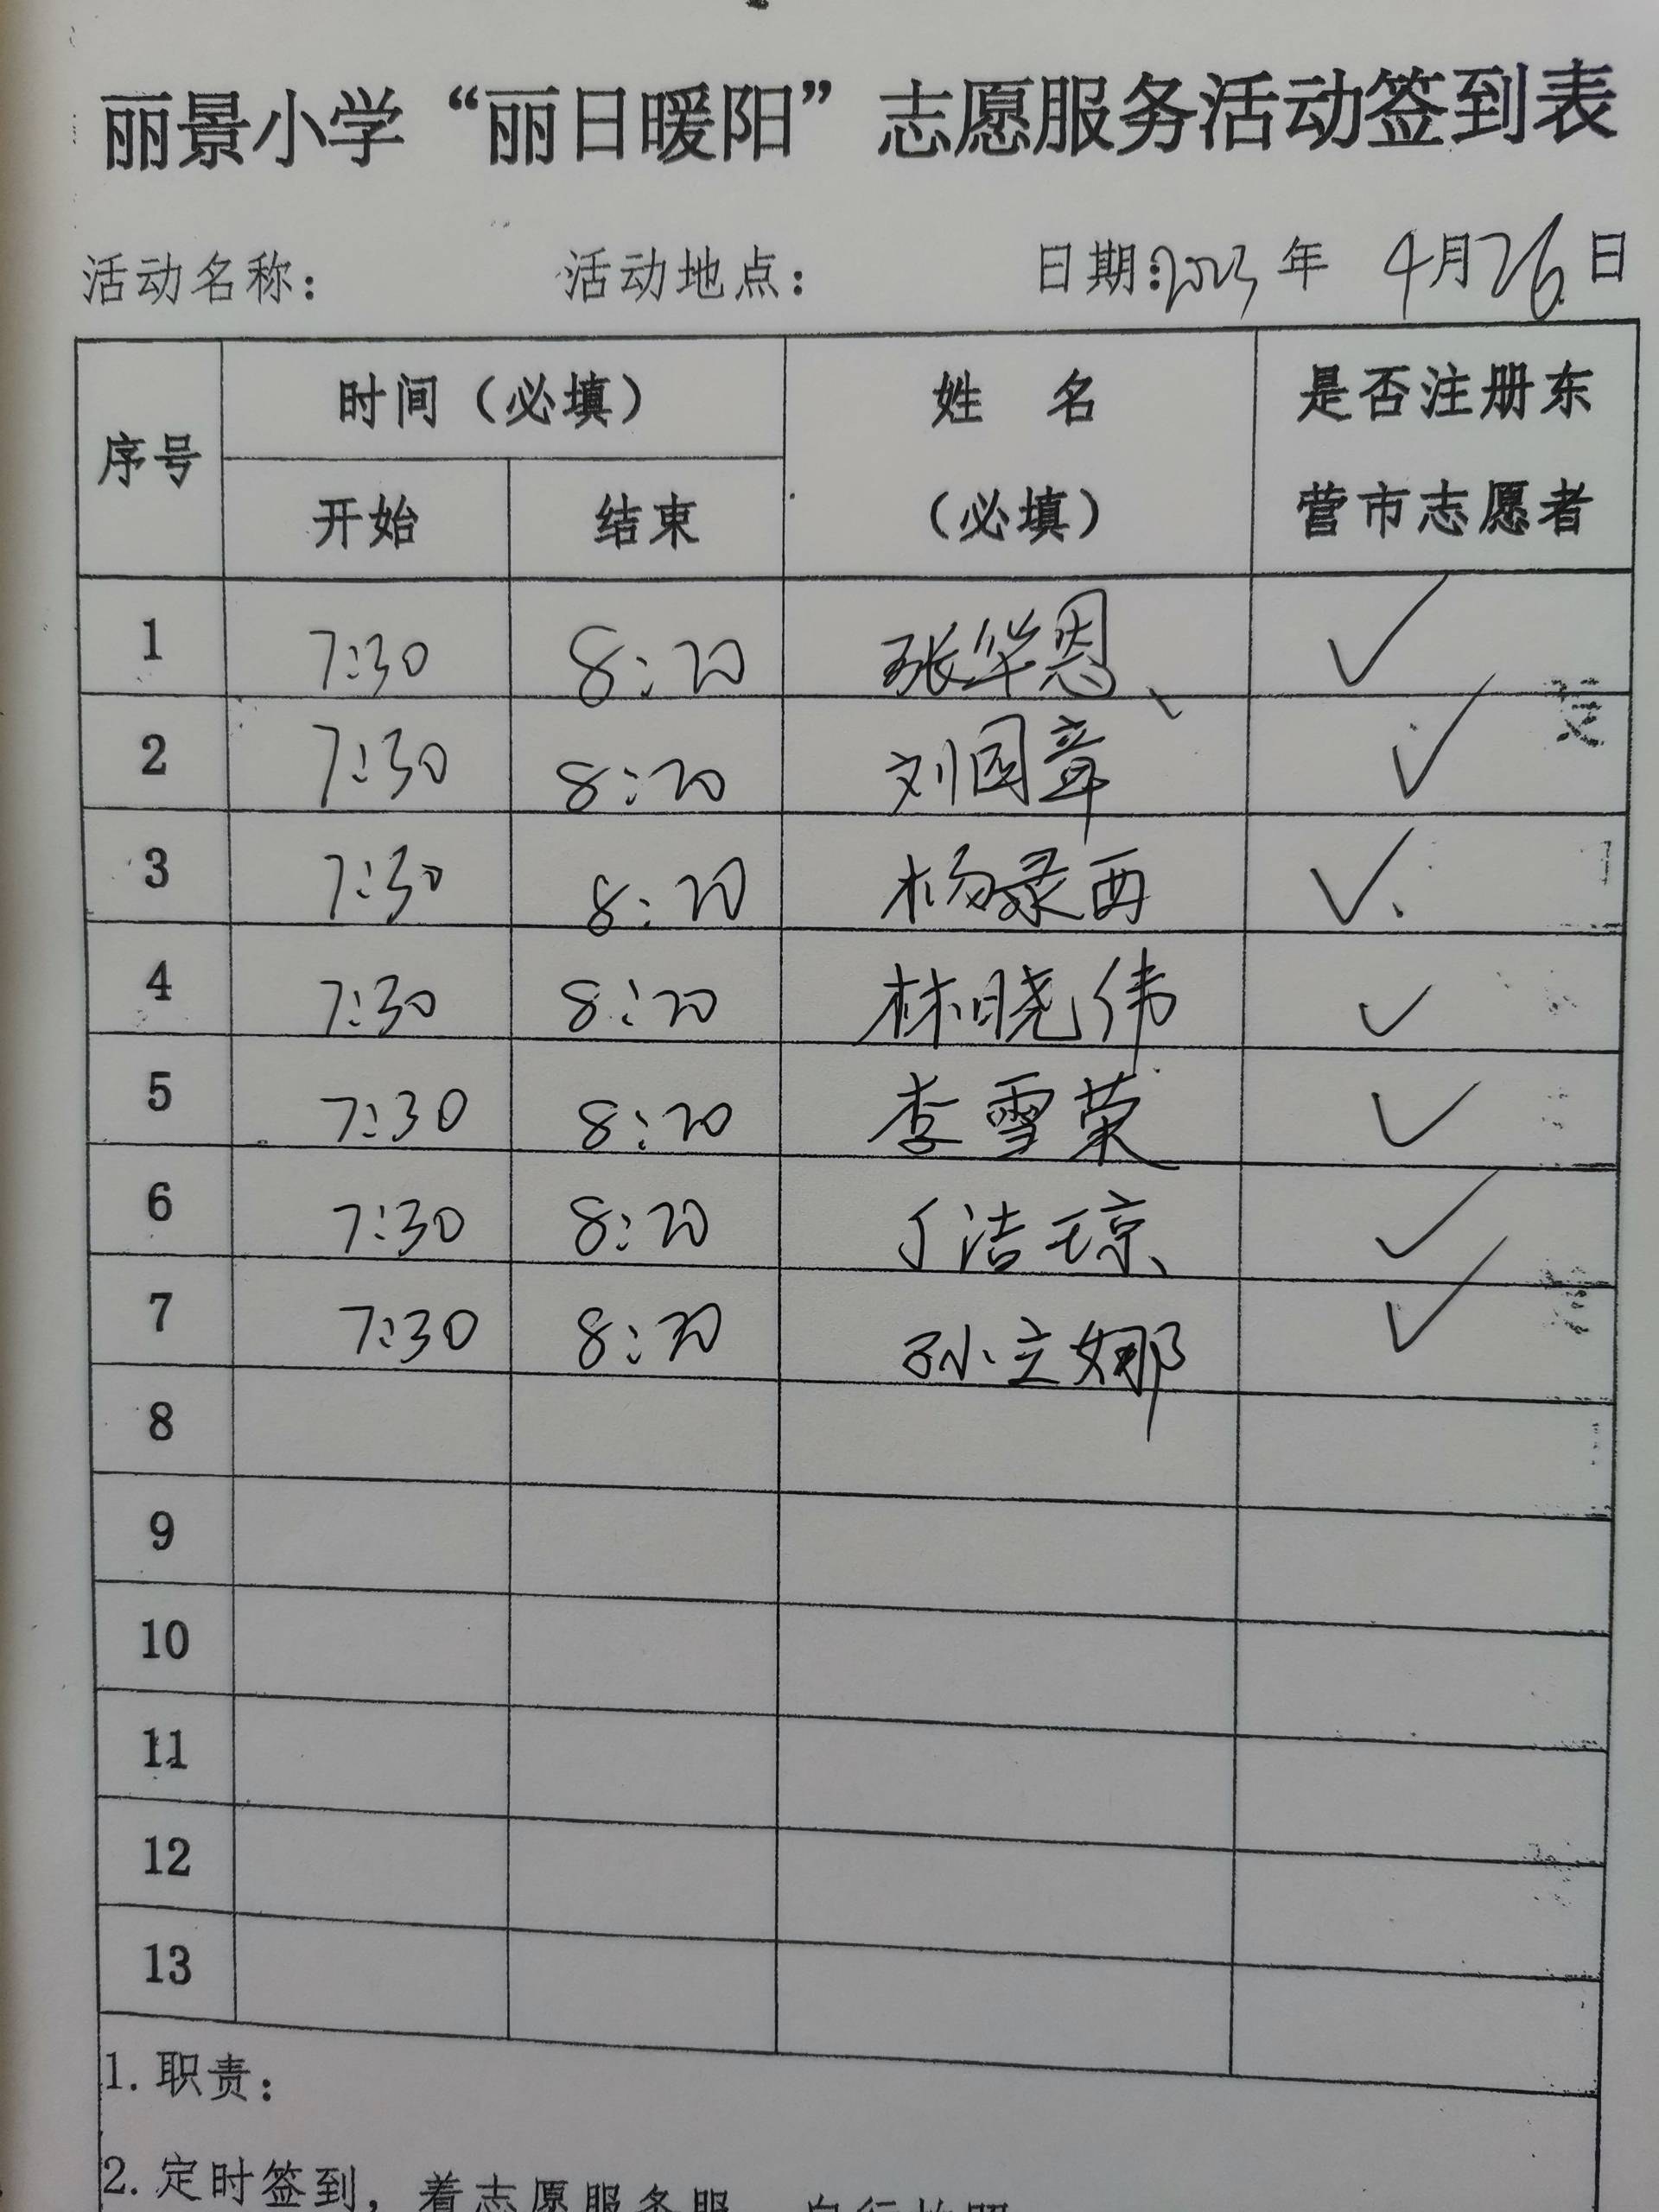 丽景小学“丽日暖阳”志愿服务活动签到表
活动名称： 活动地点： 日期：2023年 4月26日
序号 时间（必填） 姓 名（必填） 是否注册东营市志愿者
开始 结束
1 7:30 8:20 张华恩 ✓
2 7:30 8:20 刘国章 ✓
3 7:30 8:20 杨录西 ✓
4 7:30 8:20 林晓伟 ✓
5 7:30 8:20 李雪荣 ✓
6 7:30 8:20 丁洁琼 ✓
7 7:30 8:20 孙立娜 ✓
8
9
10
11
12
13
1. 职责：
2. 定时签到，着志愿服务服，自行拍照